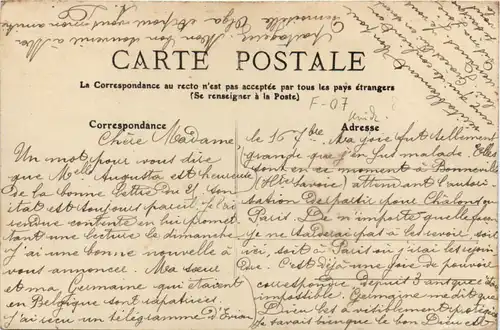 CARTE POSTALE
La Correspondance au recto n'est pas acceptée par tous les pays étrangers
(Se renseigner à la Poste)
F-07
Correspondance
Adresse
Chère Madame,
Un mot pour vous dire
que Melle Augusta est heureuse
de la bonne lettre du 21. Son
état est toujours pareil. J'ai
rendue contente en lui promet
tant une lecture le dimanche
J'ai une bonne nouvelle à
vous annoncer. Ma sœur
et ma Germaine qui étaient
en Belgique sont rapatriées.
J'ai reçu un télégramme d'Evian
le 16 Ma joie fut tellement
grande que j'en fus malade. Elles
sont en ce moment à Bonneville
(Hte Savoie) attendant l'autori
sation de partir pour Chalons ou
Paris. De n'importe quelle façon
je ne tarderai pas à les revoir, soit
ici, soit à Paris où j'irai les rejoin
dre. C'est déjà une joie de pouvoir
correspondre depuis 3 ans que c'était
impossible. Germaine me dit que
Dieu les a visiblement protégées
Je savais bien que le bon Dieu est